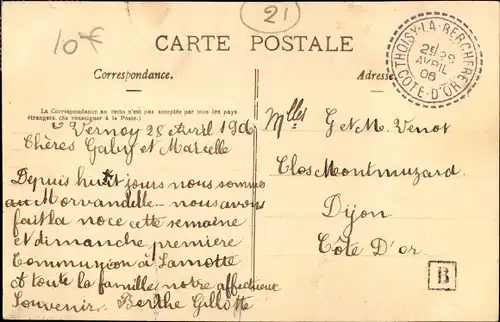 10 F
21
CARTE POSTALE
Correspondance.
Adresse
THOISY-LA-BERCHERE
2E 29
AVRIL
06
COTE-D'OR
La Correspondance au recto n'est pas acceptée par tous les pays
étrangers. (Se renseigner à la Poste.)
Vernoy 28 Avril 1906
Chères Gaby et Marcelle
Depuis huit jours nous sommes
au Morvandelle nous avons
fait la noce cette semaine
et dimanche première
Communion à Lamotte
et toute la famille notre affectueux
Souvenir. Berthe Gillotte
Mlles G et M. Venot
Clos Montmuzard
Dijon
Côte D'or
B